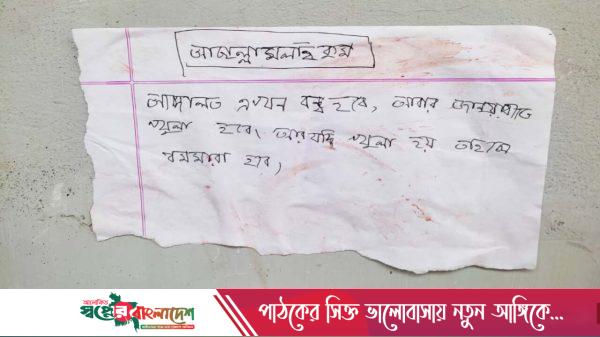 আচ্ছালামুলাইকুম
আদালত এখন বন্ধ হবে, আবার জানুয়ারীতে
খুলা হবে। আর যদি খুলা হয় তাহলে
বমমারা হবে,
আলোকিত
স্বপ্নের বাংলাদেশ
পাঠকের সিক্ত ভালোবাসায় নতুন আঙ্গিকে...